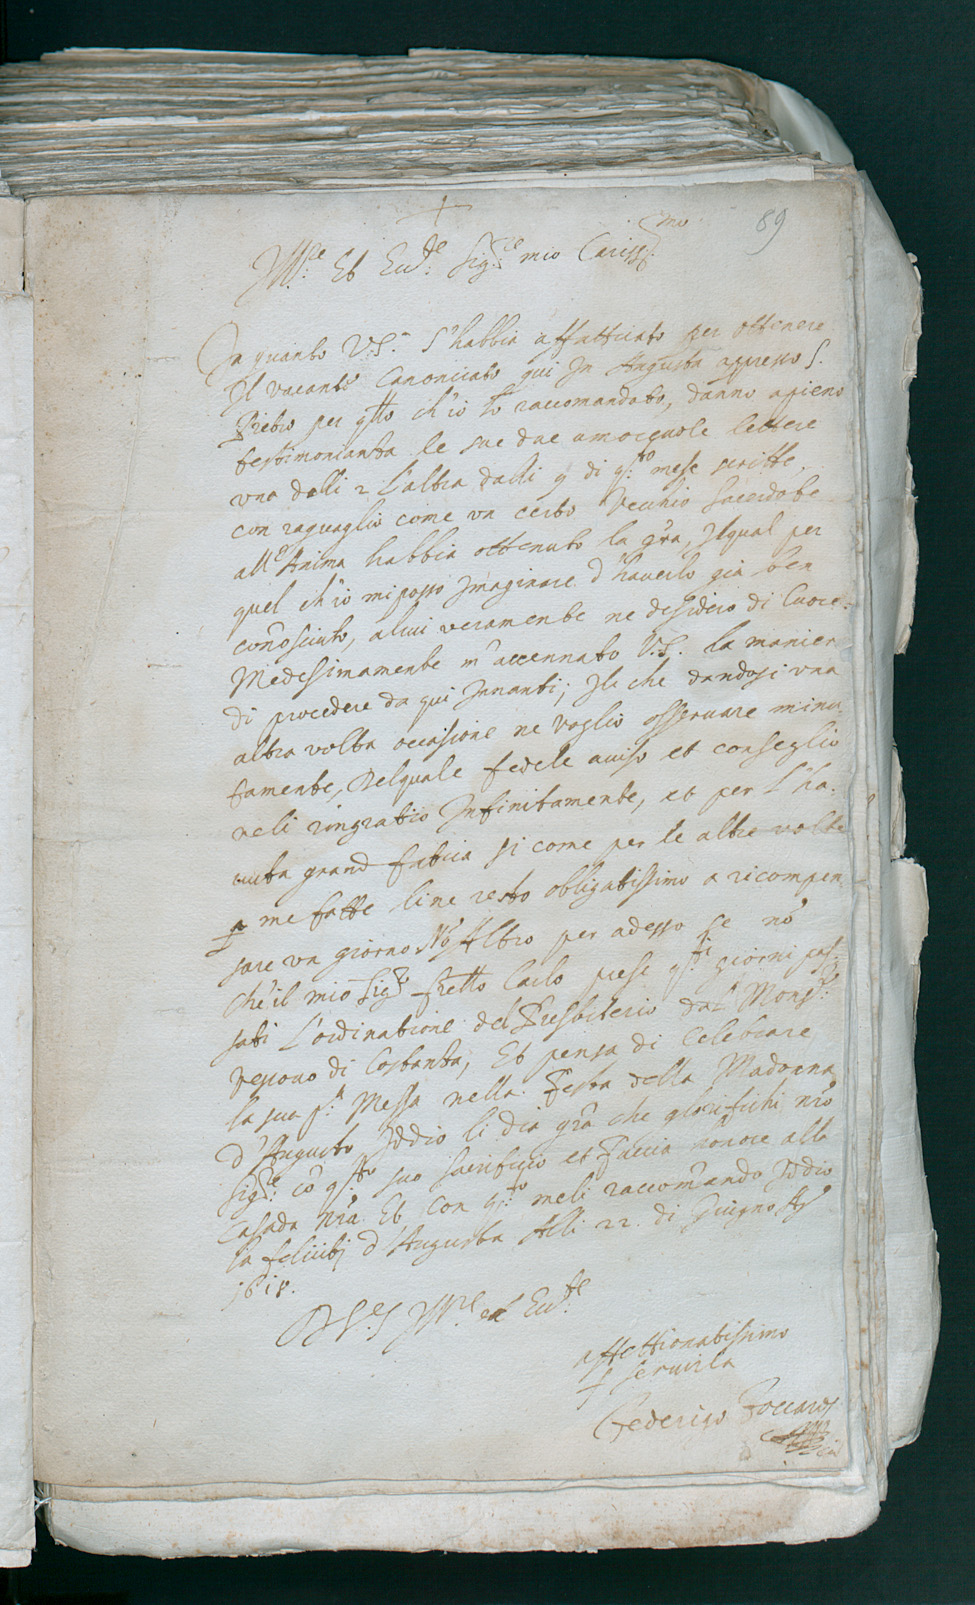 89
Ill:re Et Ecc.te Sig.re mio Cariss.mo
In quanto V.S.a s'habbia affatticato per ottenere
Il vacante Canonicato qui In Augusta appresso S.
Pietro per q̃tto ch'io l'ho raccomandato, danno apieno
testimonianta le sue due amoreuole lettere
una dalli 2 l'altra dalli 9 di q.to mese scritte,
con raguaglio come un certo Vecchio Sacerdote
all'Anima habbia ottenuto la gr̃a, Ilqual per
quel ch'io mi posso Imaginare d'hauerlo già ben
conosciuto, alui veramente ne desidero di Cuore.
Medesimamente m'accennato V.S. la manier
di procedere da qui Innanti; Ilche dandosi una
altra volta occasione ne voglio osseruare minu
tamente, Delquale fedele auiso et conseglio
neli ringratio Infinitamente, et per l'ha.
uuta grand fatica si come per le altre volte
p me fatte line resto obligatissimo a ricompen
sare un giorno. Nõ Altro per adesso se nõ
che il mio Sig.r frẽllo Carlo prese q.ti giorni pas
sati L'ordinatione del Presbiterio dal Mons.r
vescouo di Costanta, Et pensa di Celebrare
la sua p.a Messa nella Festa della Madonna
d'Augusto Iddio li dia gr̃a che glorifichi nr̃o
Sig.re cõ q.sto suo sacrificio et faccia honore alla
Casada nr̃a. Et con q.to meli raccomando Iddio
la feliciti d'Augusta Alli 22. di Giugno A.o
1618.
D V.S. Ill.re et Ecc.te
affettionatissimo
p seruirla
Federigo Foccaro